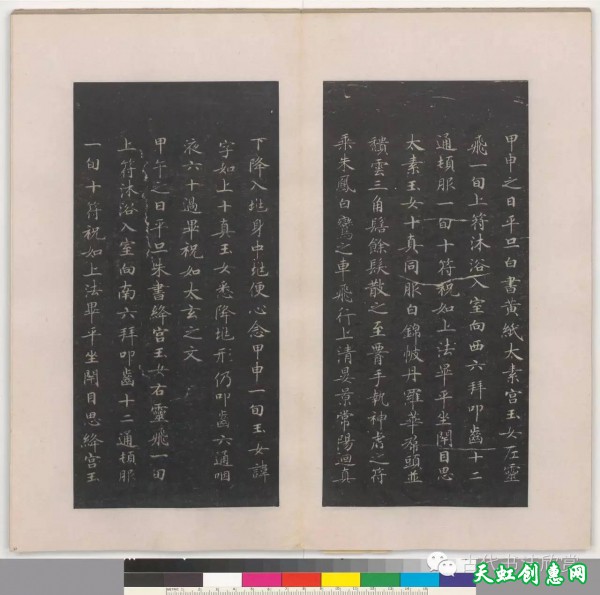 甲申之日平旦白書黃紙太素宮玉女左靈
飛一旬上符沐浴入室向西六拜叩齒十二
通頓服一旬十符祝如上法畢平坐閉目思
太素玉女十真同服白錦帔丹羅華裙頭並
穨雲三角髻餘髮散之至腰手執神虎之符
乘朱鳳白鸞之車飛行上清晏景常陽迴真
下降入地身中地便心念甲申一旬玉女諱
字如上十真玉女悉降地形仍叩齒六通咽
液六十過畢祝如太玄之文
甲午之日平旦朱書絳宮玉女右靈飛一旬
上符沐浴入室向南六拜叩齒十二通頓服
一旬十符祝如上法畢平坐閉目思絳宮玉
古代书法欣赏
天虹创惠网